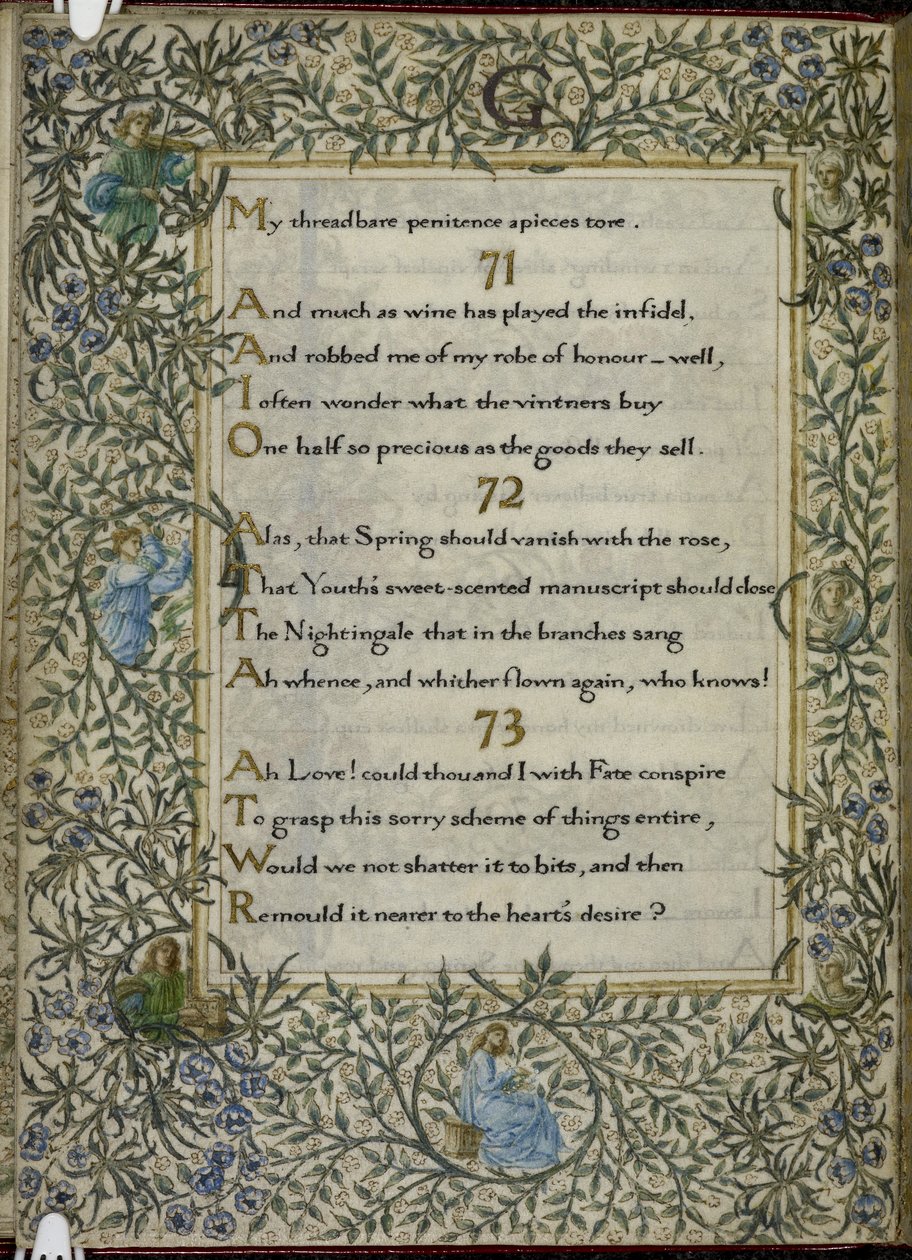 G
My threadbare penitence apieces tore .
71
And much as wine has played the infidel,
And robbed me of my robe of honour — well,
I often wonder what the vintners buy
One half so precious as the goods they sell.
72
Alas, that Spring should vanish with the rose,
That Youth's sweet-scented manuscript should close
The Nightingale that in the branches sang
Ah whence, and whither flown again, who knows!
73
Ah Love! could thou and I with Fate conspire
To grasp this sorry scheme of things entire,
Would we not shatter it to bits, and then
Remould it nearer to the heart's desire ?